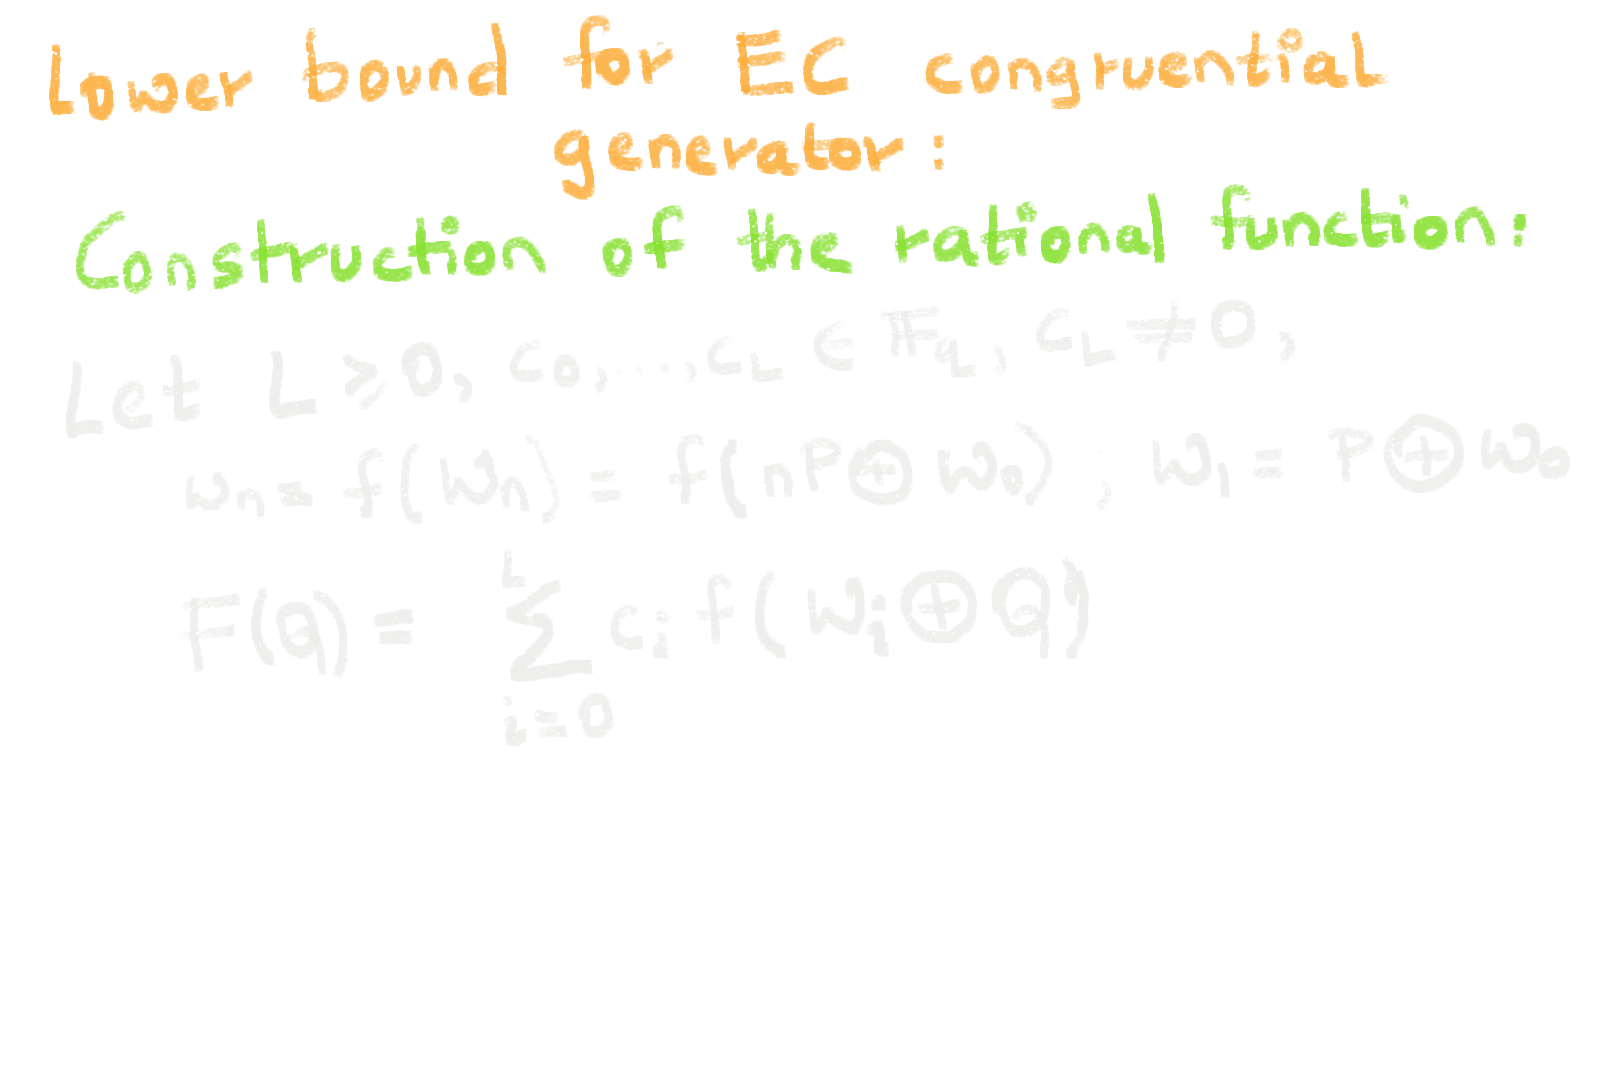 Lower bound for EC congruential
generator:
Construction of the rational function:
Let L ⩾ 0, c₀, ..., c_L ∈ 𝔽_q, c_L ≠ 0,
w_n = f(W_n) = f(nP ⊕ W₀), W₁ = P ⊕ W₀
F(Q) = ∑_{i=0}^{L} c_i f(W_i ⊕ Q)